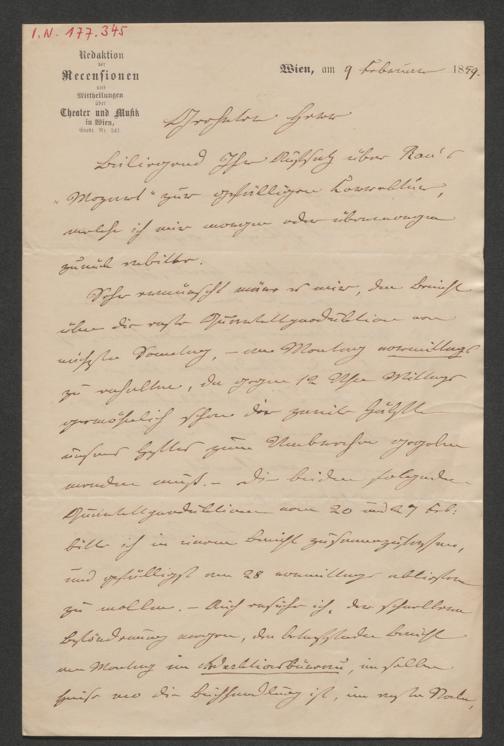 I.N. 177.345
Redaktion
der
Recensionen
und
Mittheilungen
über
Theater und Musik
in Wien,
Stadt Nr. 541.
Wien, am 9 Februar 1859.
Geehrter Herr
Beiliegend Ihr Aufsatz über Rau's
„Mozart“ zur gefälligen Correktur,
welche ich mir morgen oder übermorgen
zurück erbitte.
Sehr erwünscht wäre es mir, den Bericht
über die erste Quartettproduktion am
nächsten Sonntag, – am Montag vormittags
zu erhalten, da gegen 12 Uhr Mittags
gewöhnlich schon die zweite Hälfte
unsres Blattes zum Umbrechen gegeben
werden muß. – Die beiden folgenden
Quartettproduktionen vom 20 und 27 Feb:
bitte ich in einem Bericht zusammenzufassen,
und gefälligst am 28 vormittags abliefern
zu wollen. – Auch ersuche ich, der schnelleren
Beförderung wegen, den betreffenden Bericht
am Montag im Redaktionsbureau, im selben
Hause wo die Buchhandlung ist, im ersten Stocke,